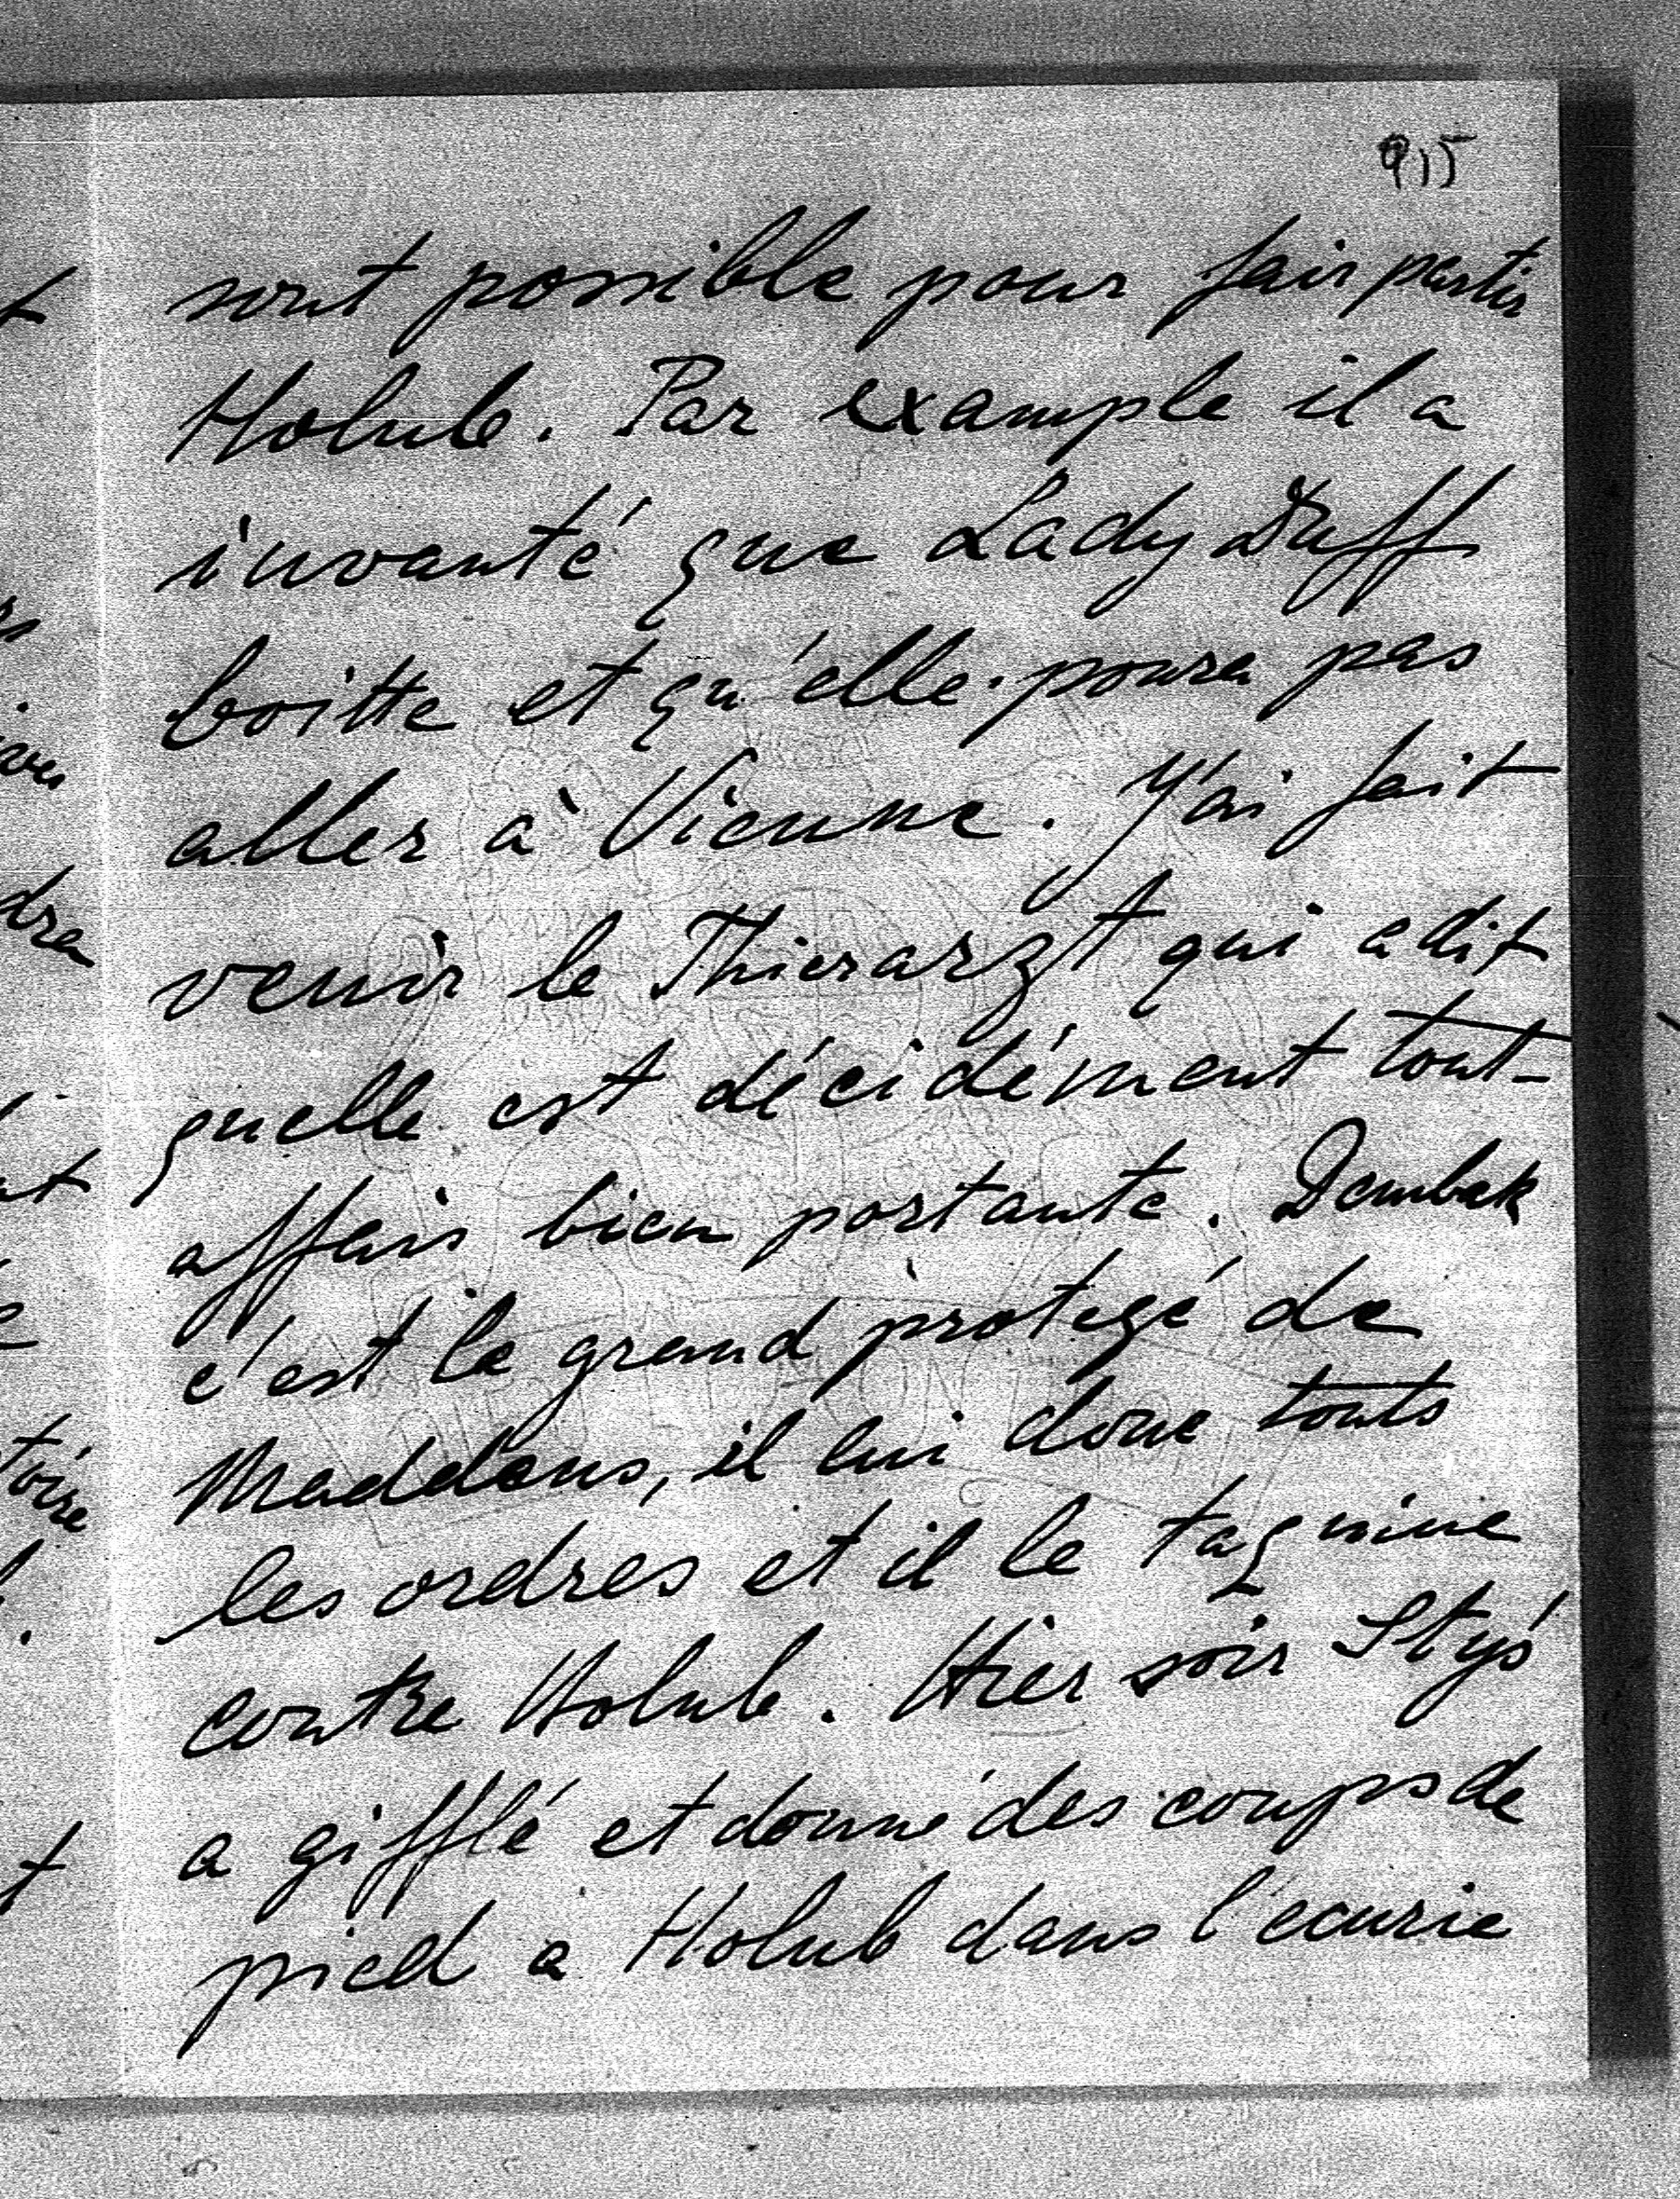 915
sont possible pour fair partir
Holub. Par example il a
invanté que Lady Duff
boitte et qu'elle poura pas
aller à Vienne. J'ai fait
venir le Thierarzt qui a dit
quelle est décidément tout-
affair bien portante. Dembek
c'est le grand protegé de
Maddans, il lui done touts
les ordres et il le taquine
contre Holub. Hier soir Styś
a gifflé et donné des coups de
pied a Holub dans l'ecurie